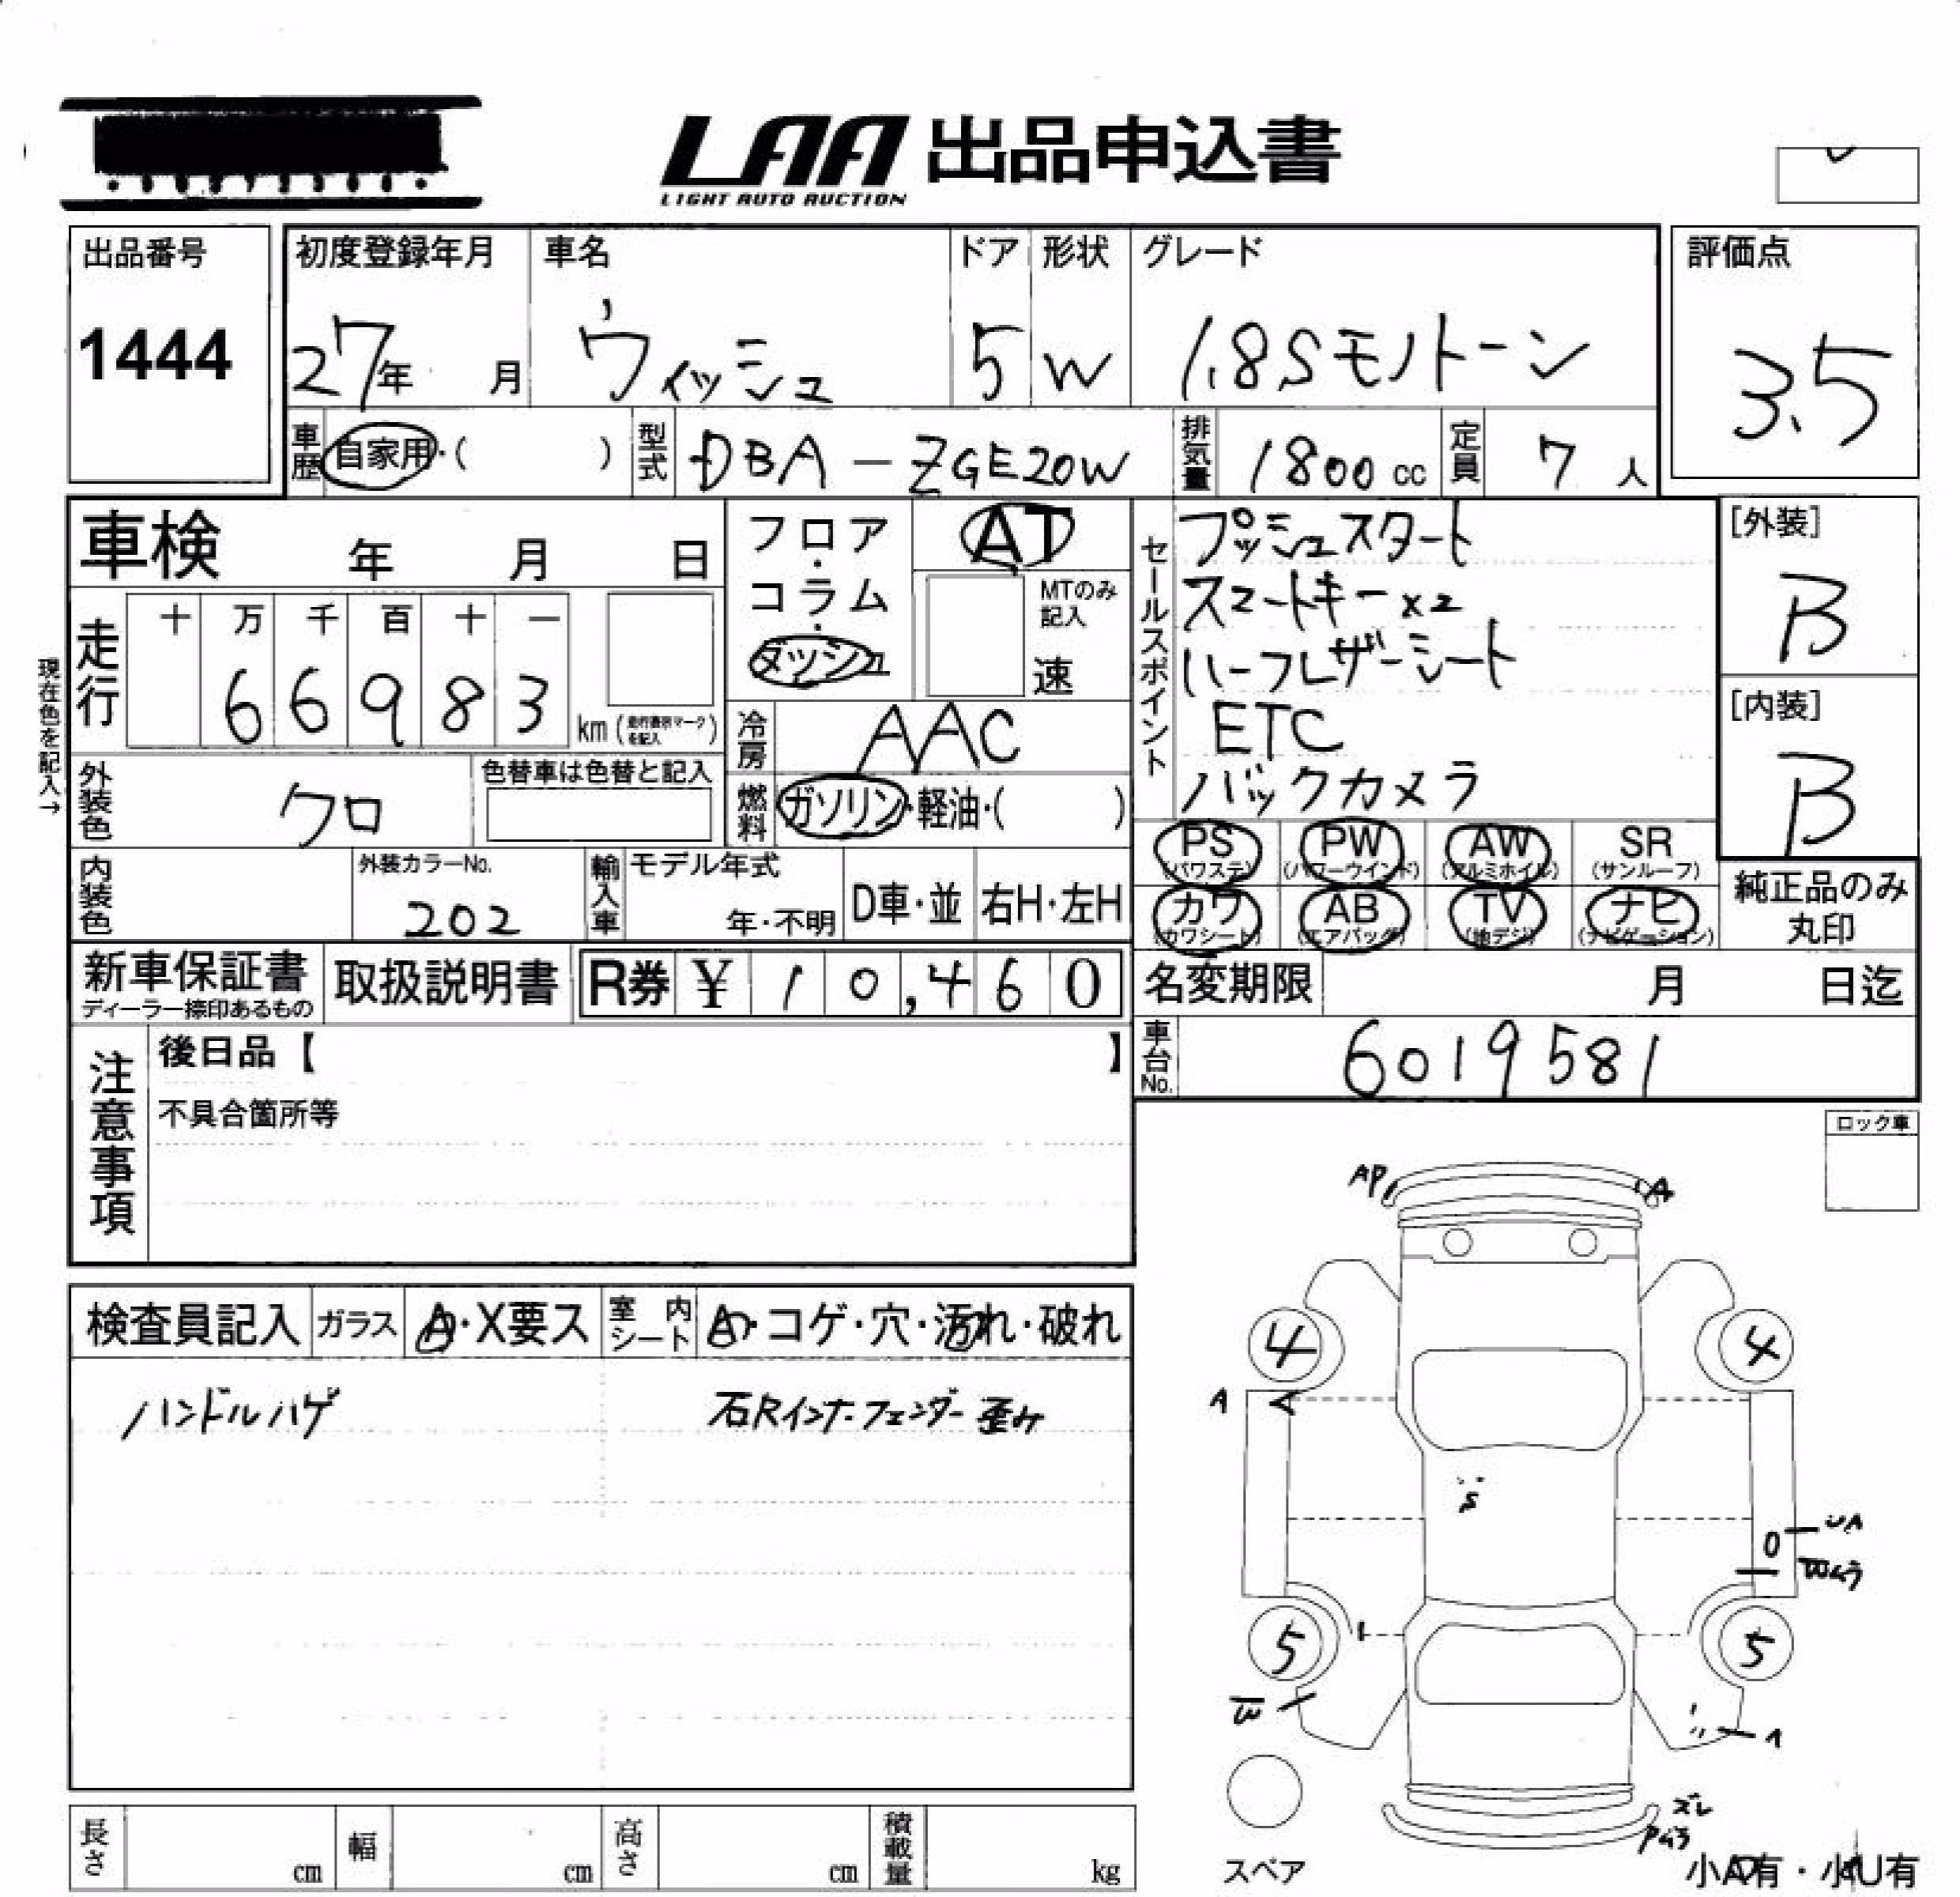 LAA 出品申込書
LIGHT AUTO AUCTION
出品番号
1444
初度登録年月
27年 月
車名
ウィッシュ
ドア
5
形状
W
グレード
1.8Sモノトーン
評価点
3.5
車歴
自家用・( )
型式
DBA-ZGE20W
排気量
1800 cc
定員
7 人
車検 年 月 日
走行
十 万 千 百 十 一
6 6 9 8 3
km (走行表示マークを記入)
現在色を記入→
外装色
クロ
色替車は色替と記入
内装色
外装カラーNo.
202
輸入車
モデル年式
年・不明
D車・並
右H・左H
フロア・コラム・ダッシュ
AT
MTのみ記入
速
冷房
AAC
燃料
ガソリン・軽油・( )
セールスポイント
プッシュスタート
スマートキー×2
ハーフレザーシート
ETC
バックカメラ
[外装]
B
[内装]
B
PS (パワステ)
PW (パワーウインド)
AW (アルミホイル)
SR (サンルーフ)
カワ (カワシート)
AB (エアバッグ)
TV (地デジ)
ナビ (ナビゲーション)
純正品のみ丸印
新車保証書
ディーラー捺印あるもの
取扱説明書
R券 ¥ 10,460
名変期限 月 日迄
車台No.
6019581
注意事項
後日品【 】
不具合箇所等
ロック車
検査員記入
ガラス
A・X要ス
室内シート
A・コゲ・穴・汚れ・破れ
ハンドルハゲ
右Rインナーフェンダー歪み
AP
A
4
4
A
S
UA
Wムラ
5
5
W
A
ズレ
Pムラ
スペア
小A有・小U有
長さ cm
幅 cm
高さ cm
積載量 kg